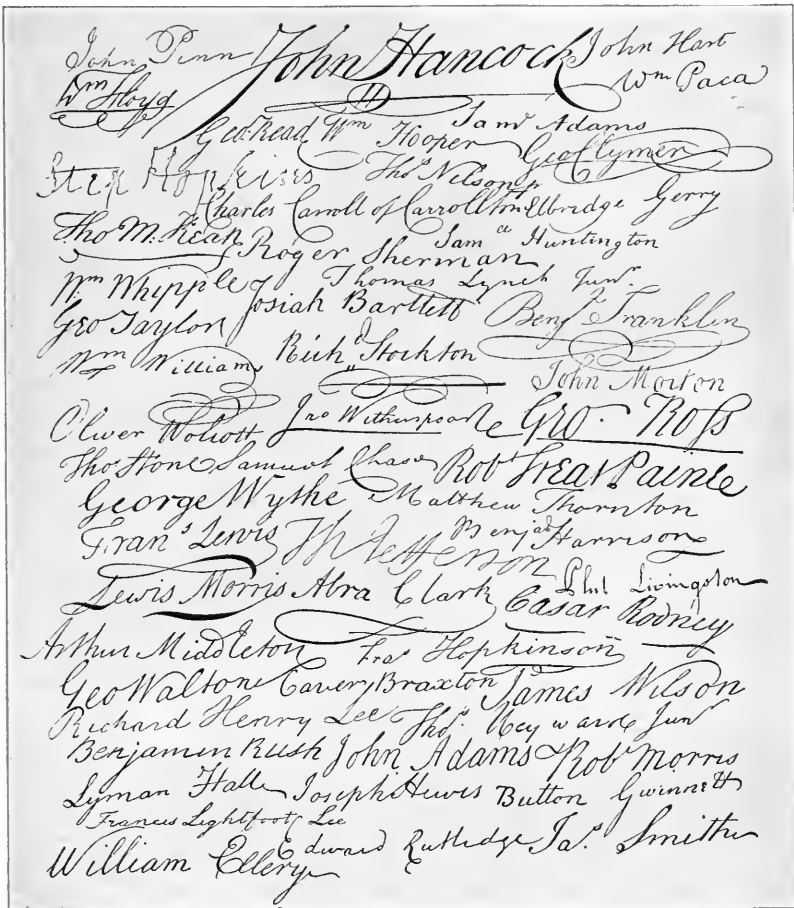 John Penn John Hancock John Hart
Wm Floyd Wm Paca
Geo. Read Wm Hooper Saml Adams
Geo Clymer
Step Hopkins Thos Nelson jr
Charles Carroll of Carrollton Elbridge Gerry
Tho M. Kean Roger Sherman Saml Huntington
Wm Whipple Thomas Lynch Junr.
Josiah Bartlett Benja Franklin
Geo Taylor
Wm Williams Richd Stockton
John Morton
Oliver Wolcott Jno Witherspoon Geo. Ross
Thos Stone Samuel Chase Robt Treat Paine
George Wythe Matthew Thornton
Frans Lewis Th Jefferson Benja Harrison
Lewis Morris Abra Clark Phil Livingston
Cæsar Rodney
Arthur Middleton Fras Hopkinson
Geo Walton Carter Braxton James Wilson
Richard Henry Lee Thos. Heyward Junr
Benjamin Rush John Adams Robt Morris
Lyman Hall Joseph Hewes Button Gwinnett
Francis Lightfoot Lee
William Ellery Edward Rutledge Jas. Smith